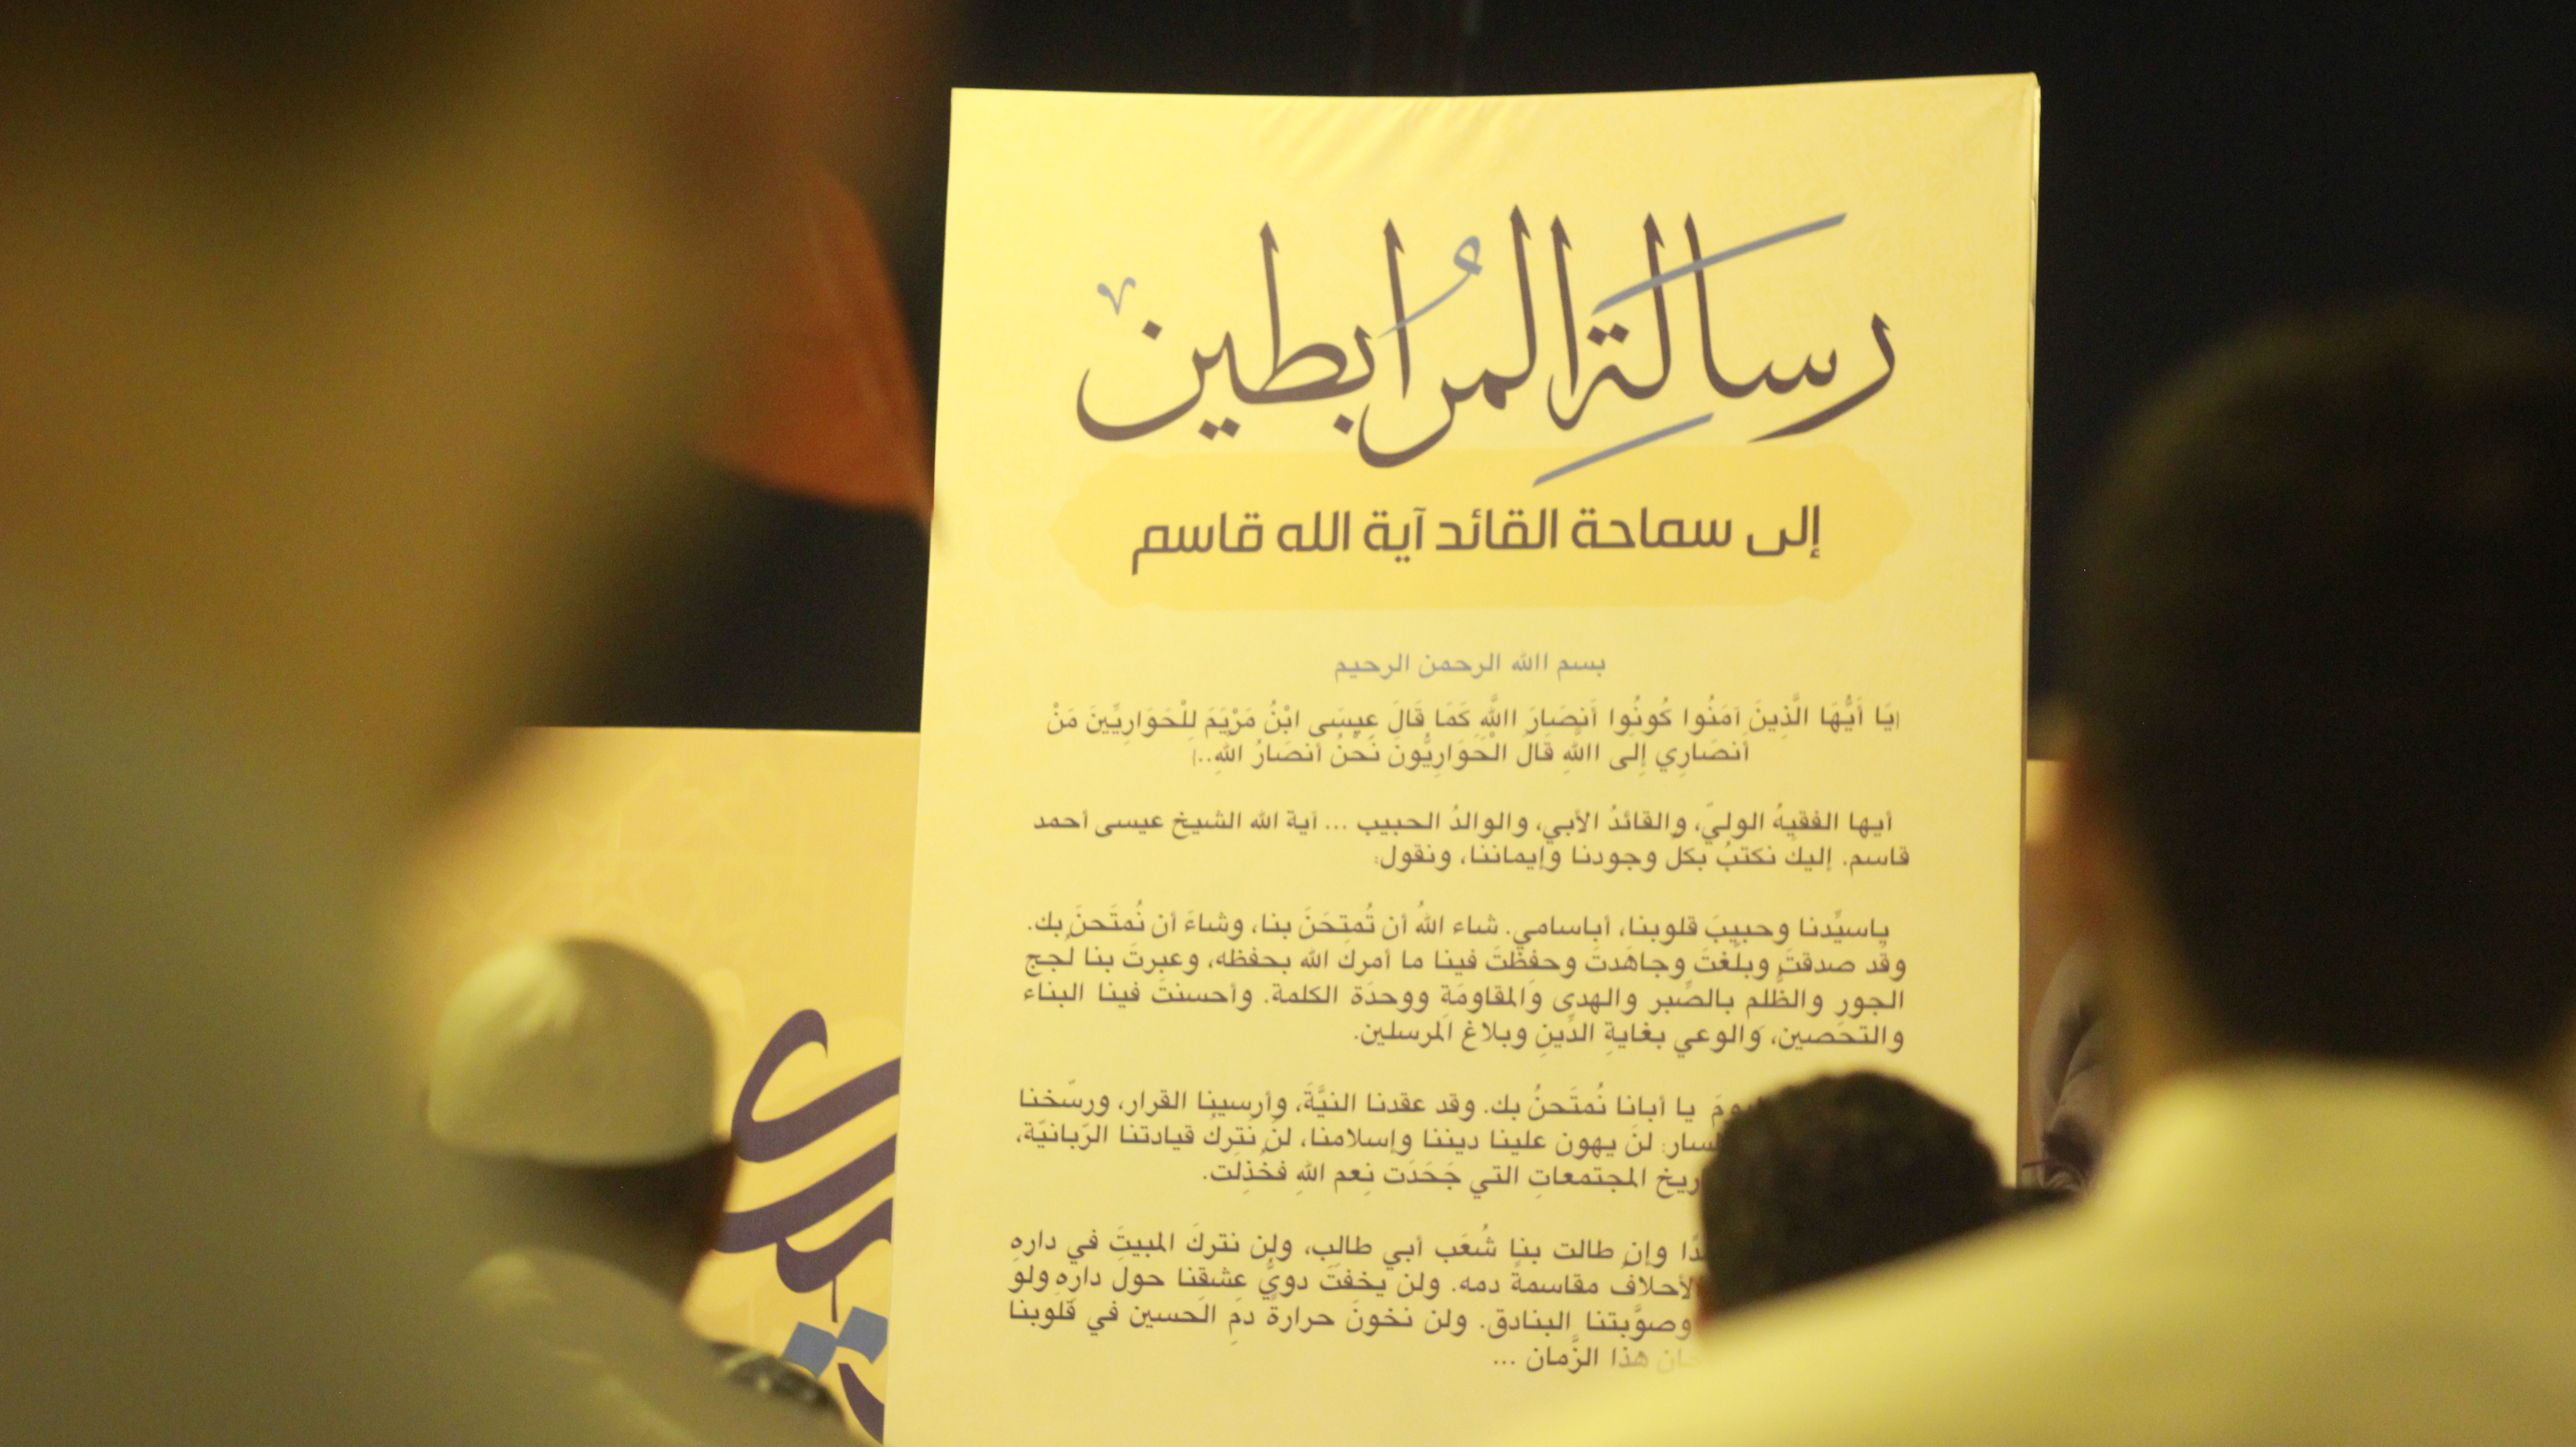 رسالةِ المُرابطين
إلى سماحة القائد آية الله قاسم
بسم االله الرحمن الرحيم
{يَا أَيُّهَا الَّذِينَ آمَنُوا كُونُوا أَنصَارَ االلَّهِ كَمَا قَالَ عِيسَى ابْنُ مَرْيَمَ لِلْحَوَارِيِّينَ مَنْ
أَنصَارِي إِلَى االلَّهِ قَالَ الْحَوَارِيُّونَ نَحْنُ أَنصَارُ اللهِ..}
أيها الفقيهُ الوليّ، والقائدُ الأبي، والوالدُ الحبيب ... آية الله الشيخ عيسى أحمد
قاسم. إليك نكتبُ بكل وجودنا وإيماننا، ونقول:
ياسيِّدنا وحبيبَ قلوبنا، أباسامي. شاء اللهُ أن تُمتِحَنَ بنا، وشاءَ أن نُمتَحنَ بك.
وقد صدقتَ وبلَّغتَ وجاهَدتَ وحفظتَ فينا ما أمرك الله بحفظه، وعبرتَ بنا لُجج
الجور والظُّلم بالصَّبر والهدى وَالمقاومَةِ ووحدَة الكلمة. وأحسنتَ فينا البناء
والتحصين، وَالوعي بغايةِ الدِّينِ وبلاغ المرسلين.
يا أبانا نُمتَحنُ بك. وقد عقدنا النيَّةَ، وأرسينا القرار، ورسّخنا
لنَ يهون علينا ديننا وإسلامنا، لن نترك قيادتنا الرّبانيّة،
المجتمعاتِ التي جَحَدَت نِعم اللهِ فخُذِلت.
وإن طالت بنا شُعَب أبي طالب، ولن نتركَ المبيتَ في دارهِ
الأحلاف مقاسمةً دمه. ولن يخفتَ دويُّ عِشقِنا حول دارِهِ ولو
وصوَّبتنا البنادق. ولن نخونَ حرارةَ دمِ الحسين في قلوبنا
هذا الزَّمان ...